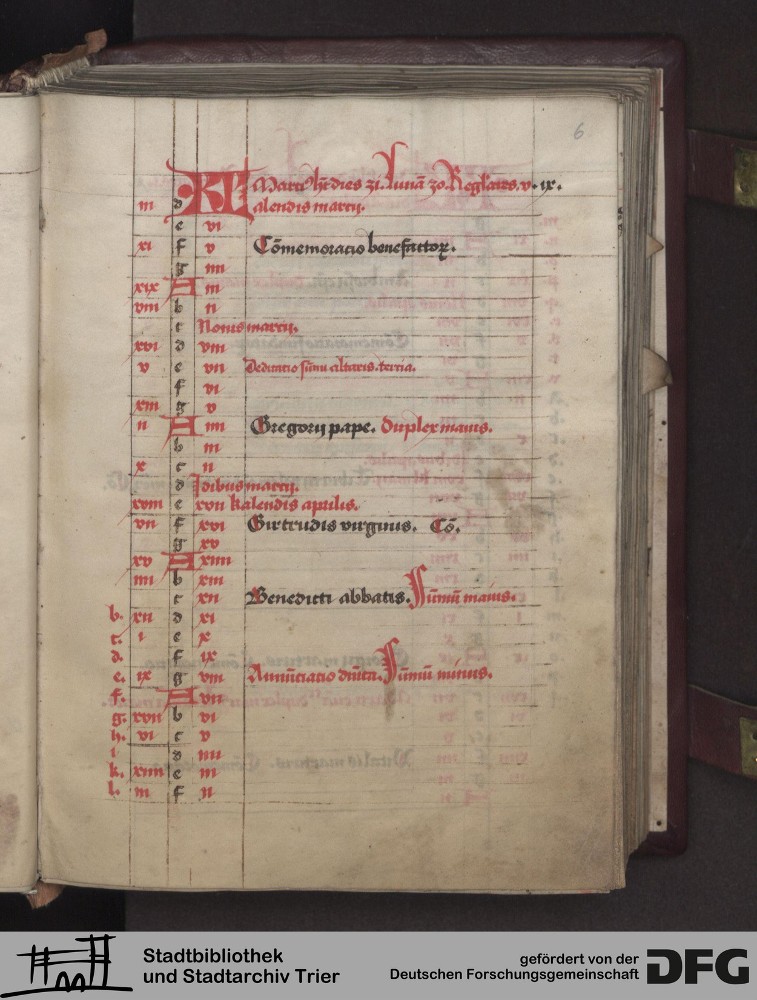 6
KL Marci hñt dies xxi. Lunā xxx Reglares. v. ix.
iii d alendis marcij.
e vi
xi f v Cōmemoracio benefactoꝝ.
g iiii
xix A iii
viii b ii
c Nonis marcij.
xvi d viii
v e vii Dedicatio sūmi altaris. terria.
f vi
xiii g v
ii A iiii Gregorij pape. Duplex maius.
b iii
x c ii
d Idibus marcij.
xviii e xvii kalendis aprilis.
vii f xvi Girtrudis virginis. Cō.
g xv
xv A xiiii
iiii b xiii
c xii Benedicti abbatis. Sūmū maius.
b. xii d xi
c. i e x
d. f ix
e. ix g viii Annūciatio dn̄ica. Sūmū minus.
f. A vii
g. xvii b vi
h. vi c v
i d iiii
k. xiiii e iii
l. iii f ii
Stadtbibliothek
und Stadtarchiv Trier
gefördert von der
Deutschen Forschungsgemeinschaft
DFG